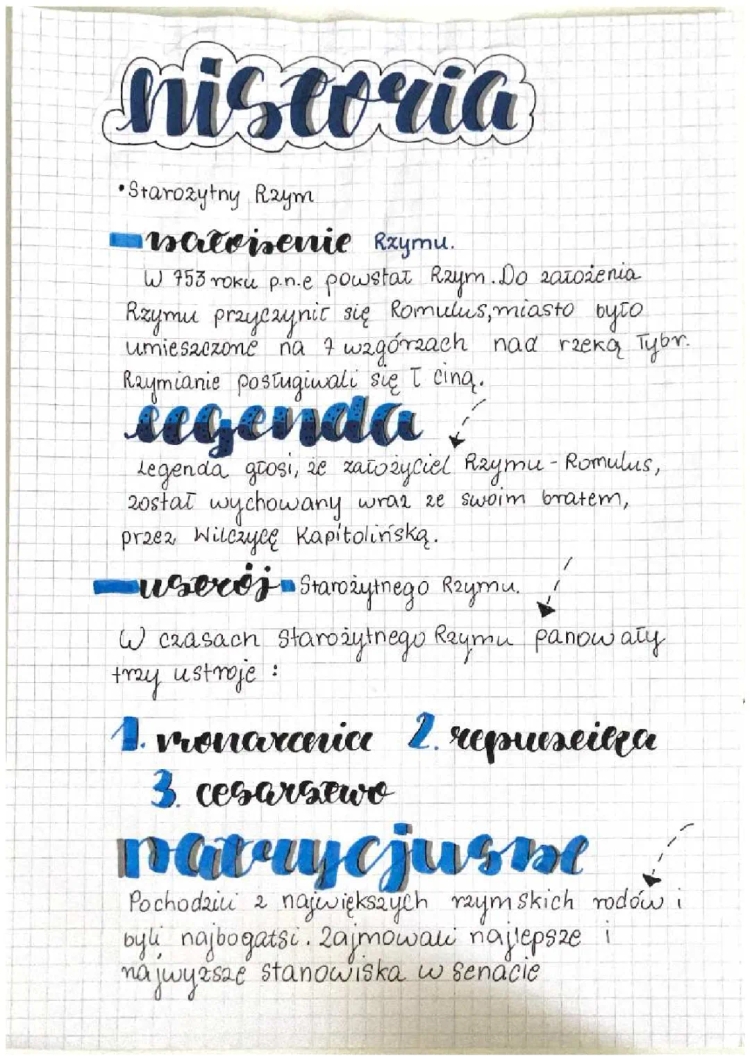 historia
•Starożytny Rzym
założenie Rzymu.
W 753 roku p.n.e powstał Rzym. Do założenia
Rzymu przyczynił się Romulus, miasto było
umieszczone na 7 wzgórzach nad rzeką Tybr.
Rzymianie posługiwali się Ł ciną.
legenda
Legenda głosi, że założyciel Rzymu - Romulus,
został wychowany wraz ze swoim bratem,
przez Wilczycę Kapitolińską.
ustrój Starożytnego Rzymu.
W czasach Starożytnego Rzymu panowały
trzy ustroje :
1. monarchia 2. republika
3. cesarstwo
patrycjusze
Pochodzili z największych rzymskich rodów i
byli najbogatsi. Zajmowali najlepsze i
najwyższe stanowiska w senacie